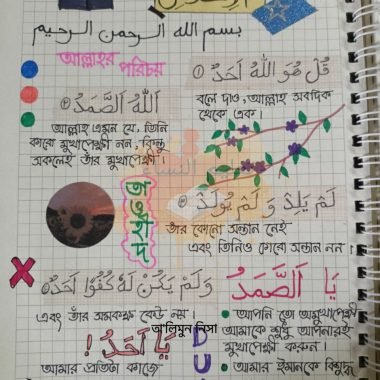 الإخلاص
بسم الله الرحمن الرحيم
আল্লাহর
পরিচয়
قُلْ هُوَ اللّٰهُ أَحَدٌ ①
বলে দাও, আল্লাহ সবদিক
থেকে এক।
اَللّٰهُ الصَّمَدُ ②
আল্লাহ এমন যে, তিনি
কারো মুখাপেক্ষী নন, কিন্তু
সকলেই তাঁর মুখাপেক্ষী।
لَمْ يَلِدْ وَلَمْ يُولَدْ
তাঁর কোনো সন্তান নেই
এবং তিনিও কারো সন্তান নন।
তাওহীদ
وَلَمْ يَكُنْ لَهُ كُفُوًا أَحَدٌ
এবং তাঁর সমকক্ষ কেউ নয়।
يَا اَلصَّمَدُ
আপনি তো অমুখাপেক্ষী
আমাকে শুধু আপনারই
মুখাপেক্ষী করুন।
আমার ঈমানকে বিশুদ্ধ
يَا أَحَدُ !
আমার প্রতিটা কাজে
আ'লিমুন নিসা